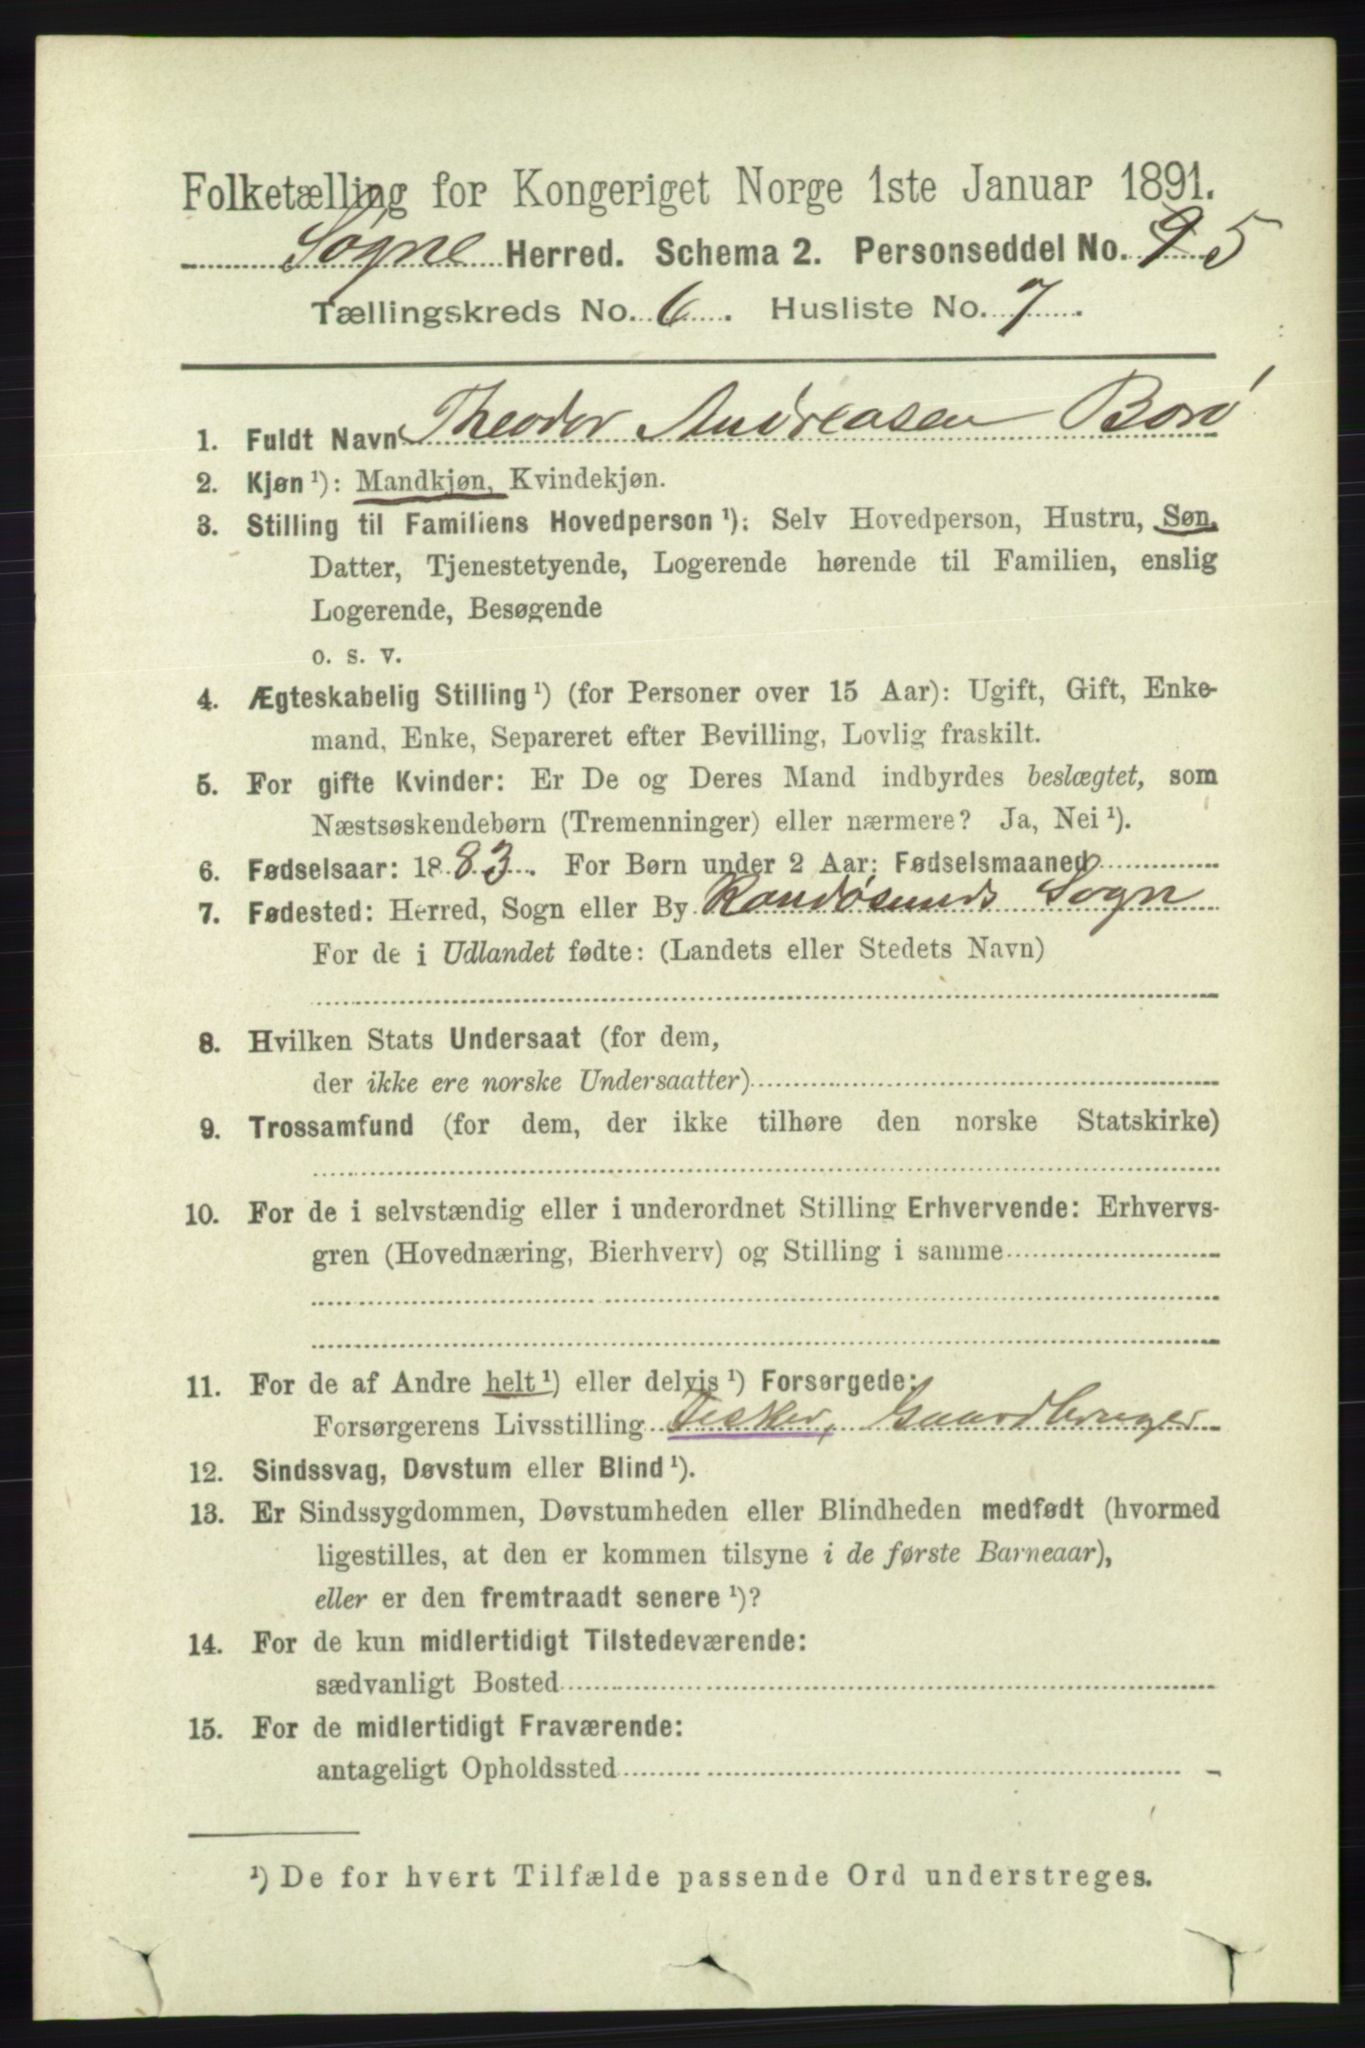 Folketælling for Kongeriget Norge 1ste Januar 1891.
Søgne Herred. Schema 2. Personseddel No. 95
Tællingskreds No. 6. Husliste No. 7.
1. Fuldt Navn Theodor Andreasen Borø
2. Kjøn ¹): Mandkjøn, Kvindekjøn.
3. Stilling til Familiens Hovedperson ¹): Selv Hovedperson, Hustru, Søn,
Datter, Tjenestetyende, Logerende hørende til Familien, enslig
Logerende, Besøgende
o. s. v.
4. Ægteskabelig Stilling ¹) (for Personer over 15 Aar): Ugift, Gift, Enke-
mand, Enke, Separeret efter Bevilling, Lovlig fraskilt.
5. For gifte Kvinder: Er De og Deres Mand indbyrdes beslægtet, som
Næstsøskendebørn (Tremenninger) eller nærmere? Ja, Nei ¹).
6. Fødselsaar: 1883. For Børn under 2 Aar: Fødselsmaaned
7. Fødested: Herred, Sogn eller By Randøsunds Sogn
For de i Udlandet fødte: (Landets eller Stedets Navn)
8. Hvilken Stats Undersaat (for dem,
der ikke ere norske Undersaatter)
9. Trossamfund (for dem, der ikke tilhøre den norske Statskirke)
10. For de i selvstændig eller i underordnet Stilling Erhvervende: Erhvervs-
gren (Hovednæring, Bierhverv) og Stilling i samme
11. For de af Andre helt ¹) eller delvis ¹) Forsørgede:
Forsørgerens Livsstilling Fisker, Gaardbruger
12. Sindssvag, Døvstum eller Blind ¹).
13. Er Sindssygdommen, Døvstumheden eller Blindheden medfødt (hvormed
ligestilles, at den er kommen tilsyne i de første Barneaar),
eller er den fremtraadt senere ¹)?
14. For de kun midlertidigt Tilstedeværende:
sædvanligt Bosted
15. For de midlertidigt Fraværende:
antageligt Opholdssted
¹) De for hvert Tilfælde passende Ord understreges.